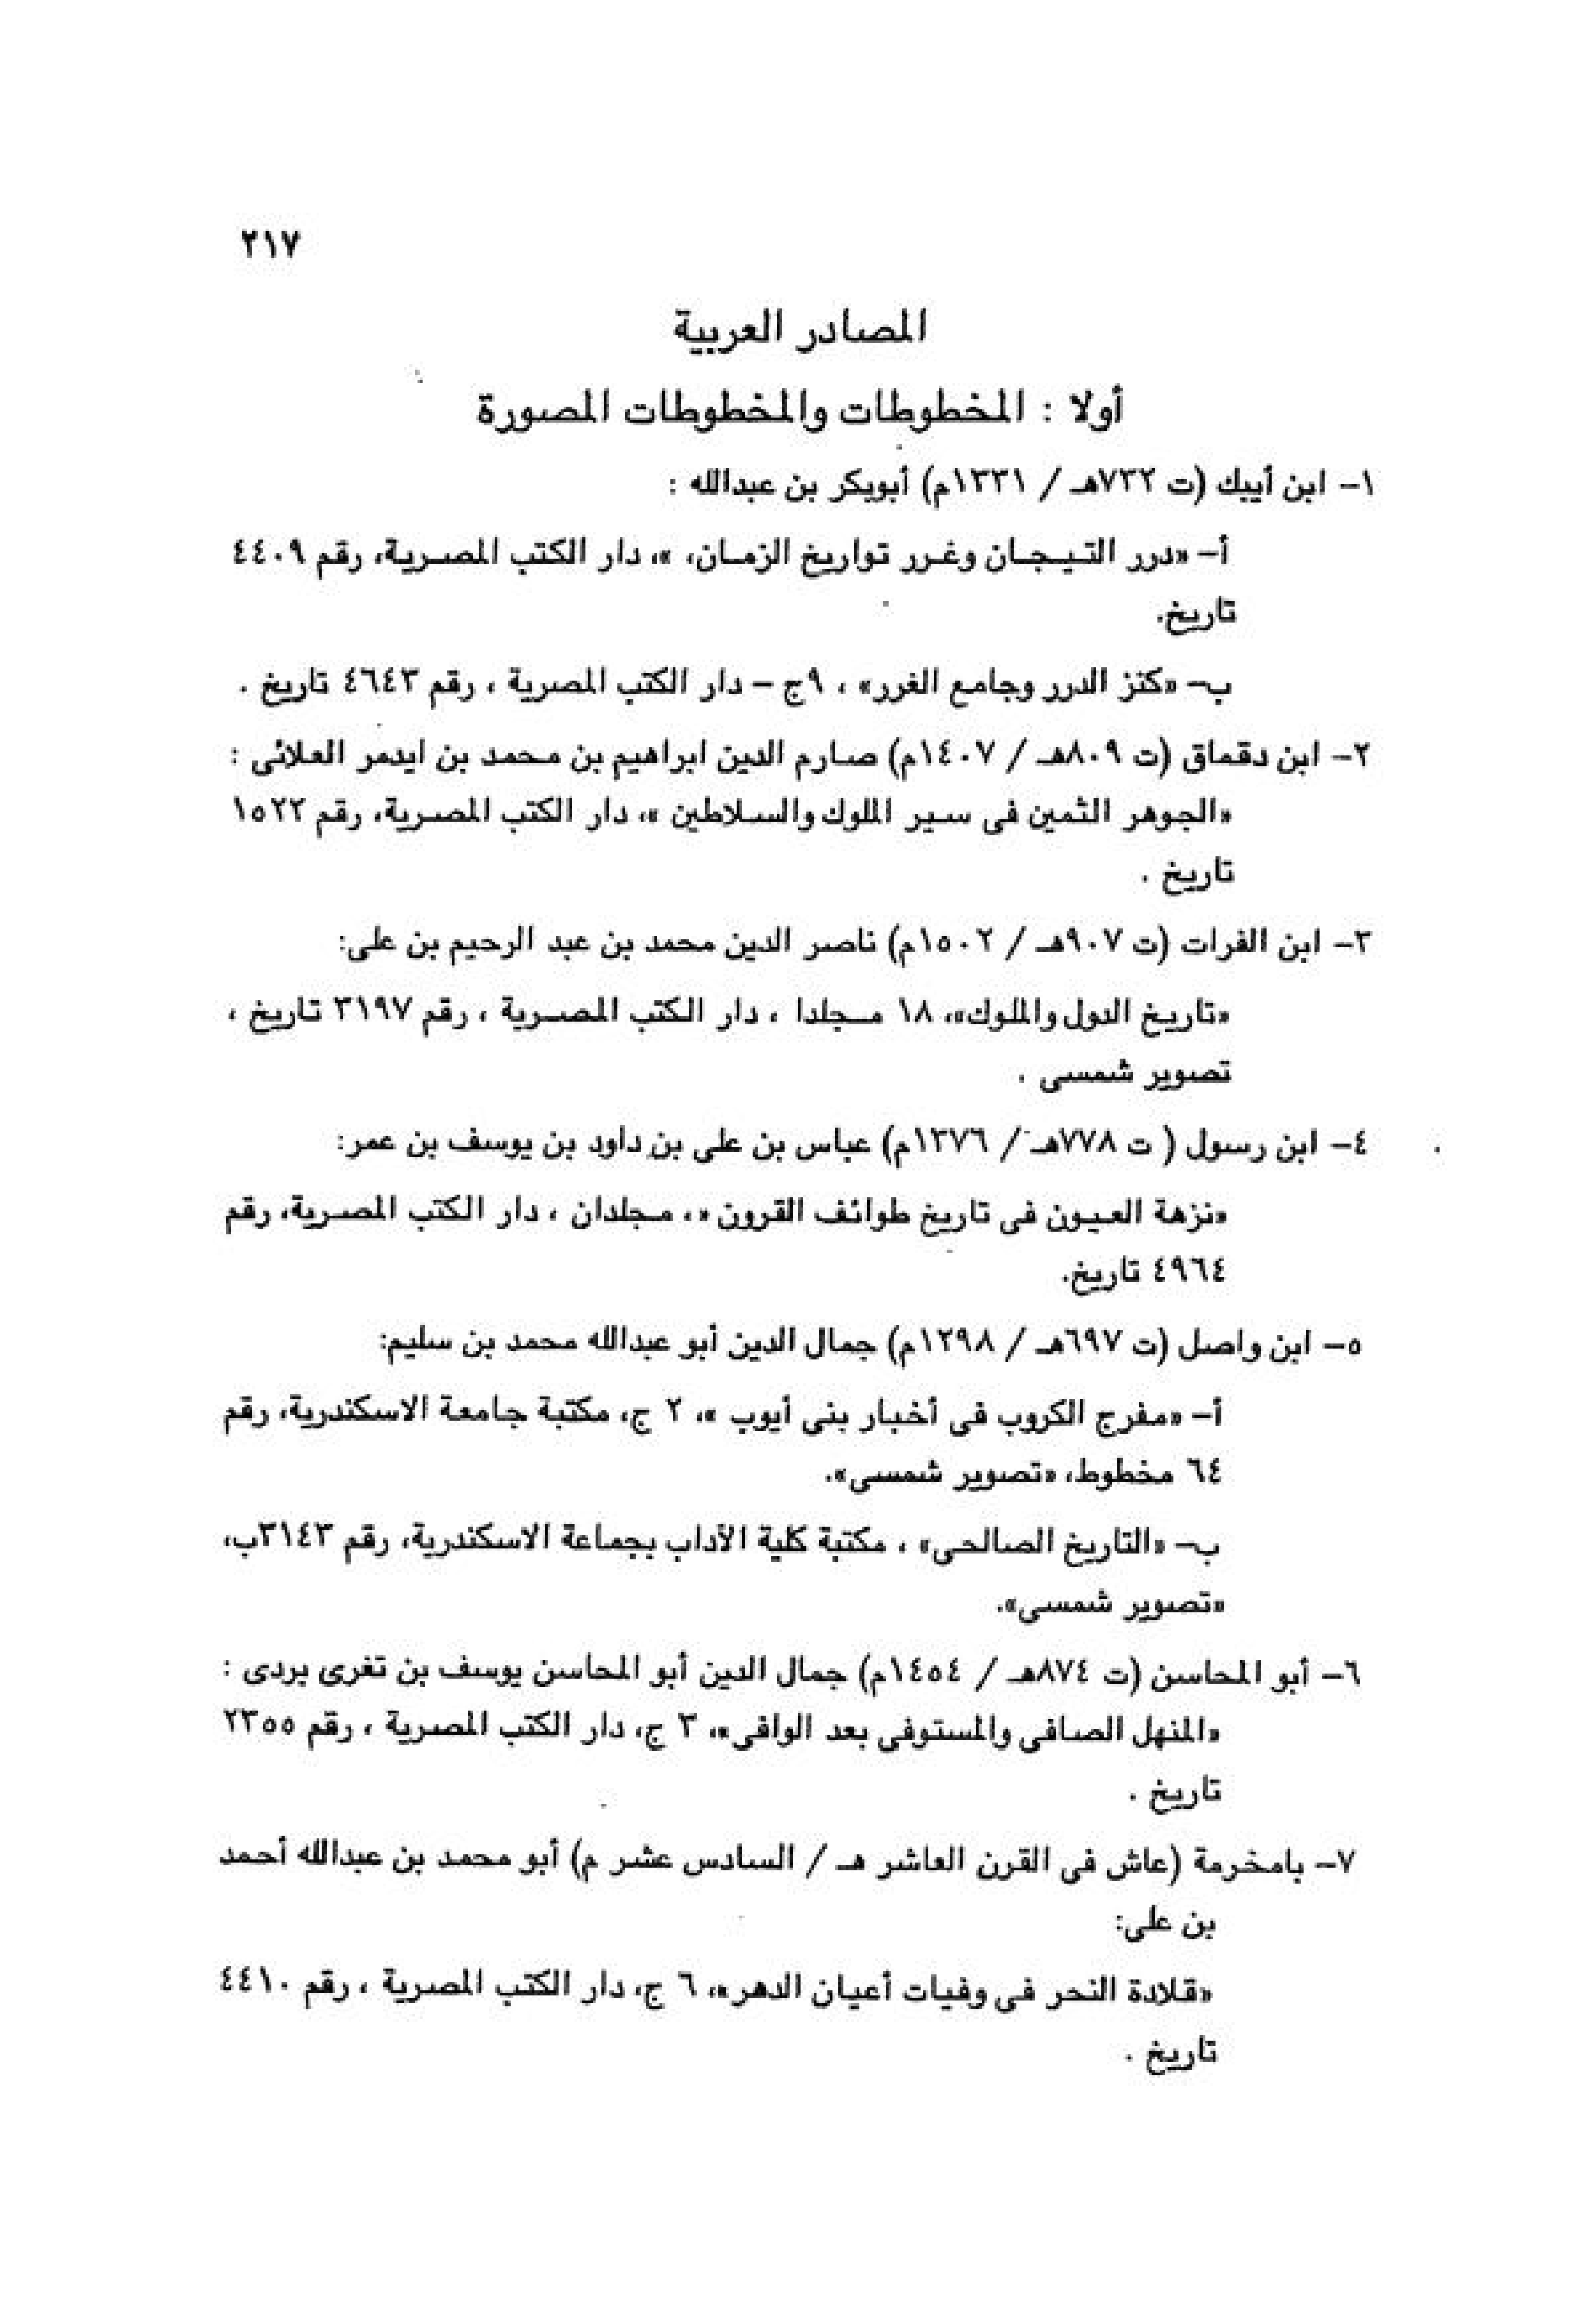 ٢١٧
المصادر العربية
أولا : المخطوطات والمخطوطات المصورة
١- ابن أيبك (ت ٧٣٢هـ / ١٣٣١م) أبوبكر بن عبدالله :
أ- «درر التيجان وغرر تواريخ الزمان، »، دار الكتب المصرية، رقم ٤٤٠٩
تاريخ.
ب- «كنز الدرر وجامع الغرر» ، ٩ج - دار الكتب المصرية ، رقم ٤٦٤٣ تاريخ .
٢- ابن دقماق (ت ٨٠٩هـ / ١٤٠٧م) صارم الدين ابراهيم بن محمد بن ايدمر العلائى :
«الجوهر الثمين فى سير الملوك والسلاطين »، دار الكتب المصرية، رقم ١٥٢٢
تاريخ .
٣- ابن الفرات (ت ٩٠٧هـ / ١٥٠٢م) ناصر الدين محمد بن عبد الرحيم بن على:
«تاريخ الدول والملوك»، ١٨ مجلدا ، دار الكتب المصرية ، رقم ٣١٩٧ تاريخ ،
تصوير شمسى .
٤- ابن رسول ( ت ٧٧٨هـ / ١٣٧٦م) عباس بن على بن داود بن يوسف بن عمر:
«نزهة العيون فى تاريخ طوائف القرون «، مجلدان ، دار الكتب المصرية، رقم
٤٩٦٤ تاريخ.
٥- ابن واصل (ت ٦٩٧هـ / ١٢٩٨م) جمال الدين أبو عبدالله محمد بن سليم:
أ- «مفرج الكروب فى أخبار بنى أيوب »، ٢ ج، مكتبة جامعة الاسكندرية، رقم
٦٤ مخطوط، «تصوير شمسى».
ب- «التاريخ الصالحى» ، مكتبة كلية الآداب بجماعة الاسكندرية، رقم ٣١٤٣ب،
«تصوير شمسى».
٦- أبو المحاسن (ت ٨٧٤هـ / ١٤٥٤م) جمال الدين أبو المحاسن يوسف بن تغرى بردى :
«المنهل الصافى والمستوفى بعد الوافى»، ٣ ج، دار الكتب المصرية ، رقم ٢٣٥٥
تاريخ .
٧- بامخرمة (عاش فى القرن العاشر هـ / السادس عشر م) أبو محمد بن عبدالله أحمد
بن على:
«قلادة النحر فى وفيات أعيان الدهر»، ٦ ج، دار الكتب المصرية ، رقم ٤٤١٠
تاريخ .